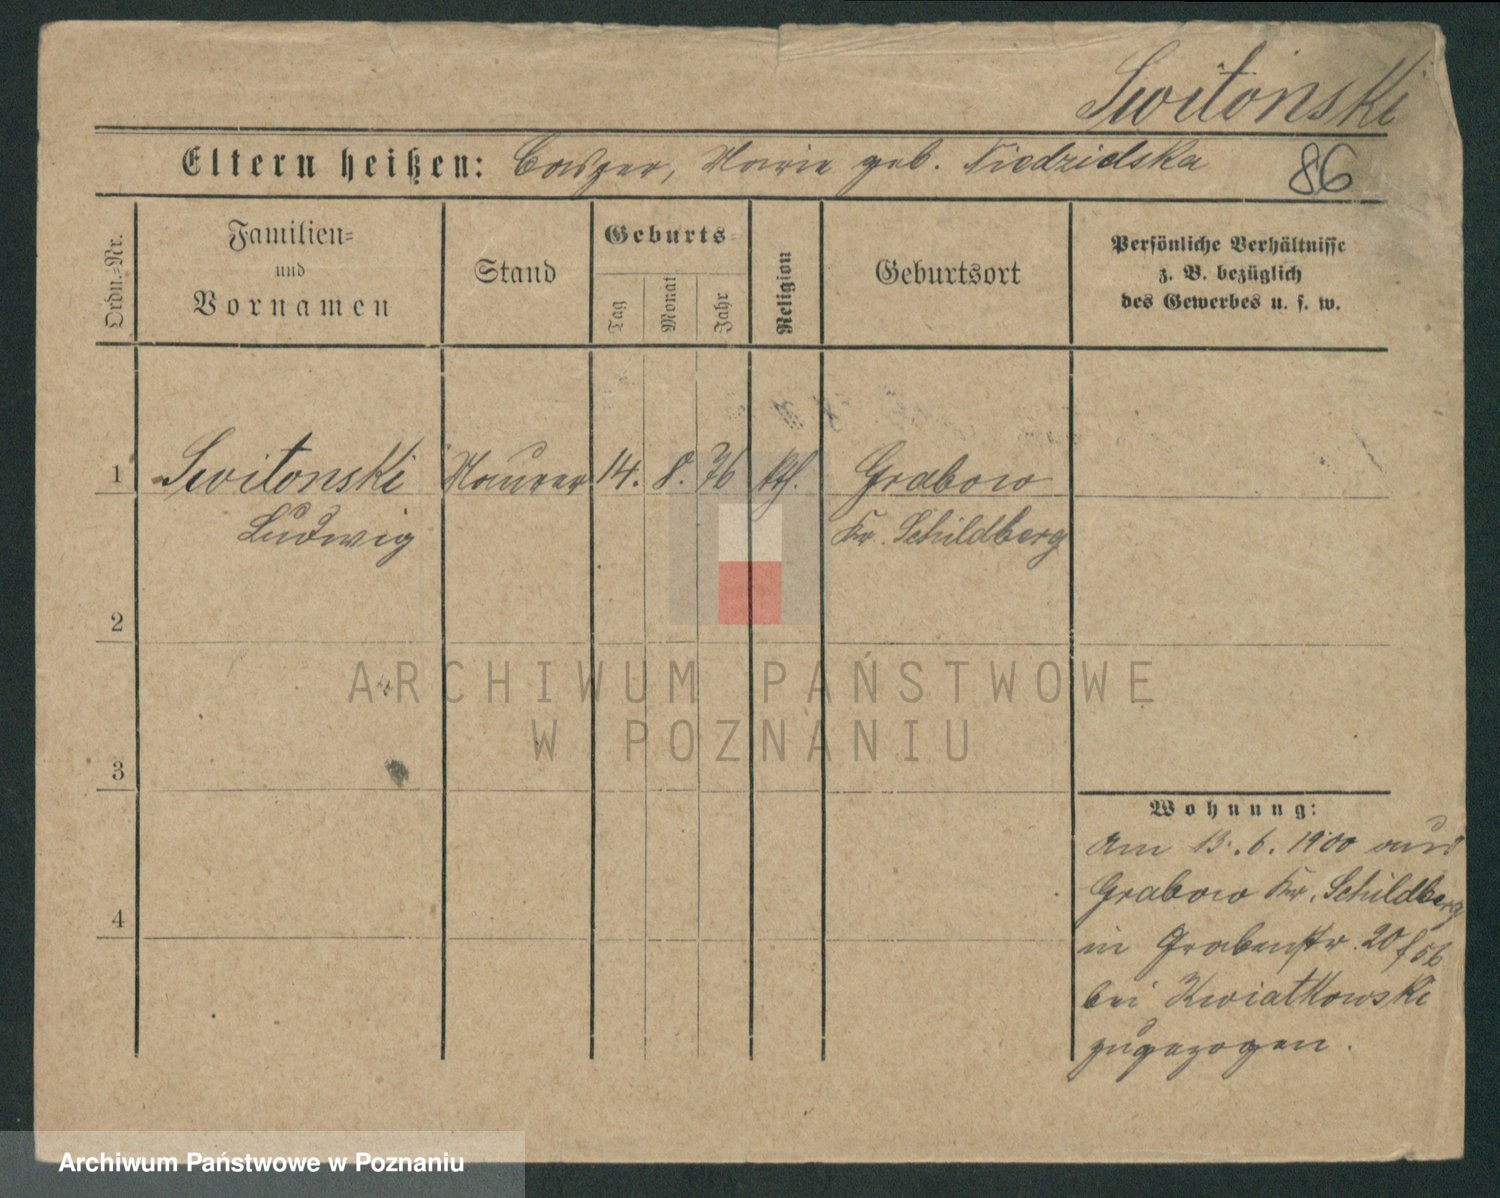 Switonski
Eltern heißen: Casper, Marie geb. Niedzielska
86
Ordn.-Nr.
Familien-
und
Vornamen
Stand
Geburts-
Tag
Monat
Jahr
Religion
Geburtsort
Persönliche Verhältnisse
z. B. bezüglich
des Gewerbes u. s. w.
1 Switonski Maurer 14. 8. 76 kth. Grabow
Ludwig Kr. Schildberg
2
3
4
Wohnung:
Am 13. 6. 1900 aus
Grabow Kr. Schildberg
in Grabenstr. 20
bei Kwiatkowski
zugezogen.
ARCHIWUM PAŃSTWOWE
W POZNANIU
Archiwum Państwowe w Poznaniu